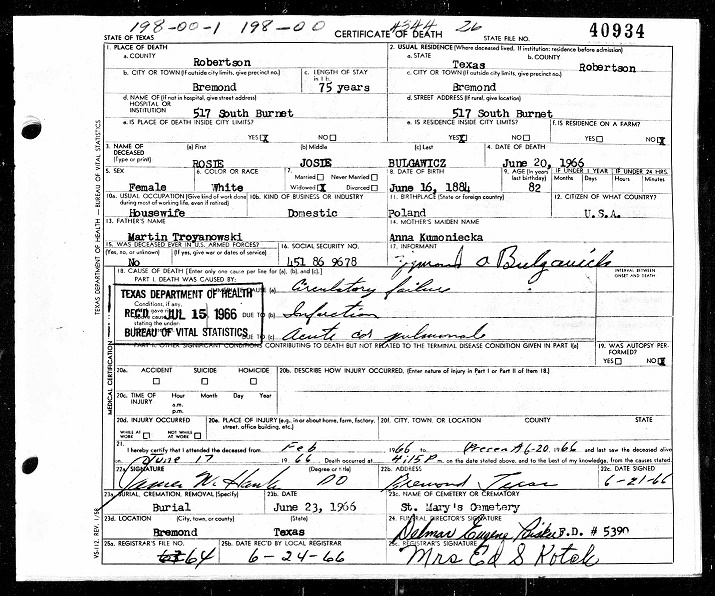 198-00-1 198-00 #344 26
STATE OF TEXAS CERTIFICATE OF DEATH STATE FILE NO. 40934
1. PLACE OF DEATH 2. USUAL RESIDENCE (Where deceased lived. If institution: residence before admission)
a. COUNTY a. STATE b. COUNTY
Robertson Texas Robertson
b. CITY OR TOWN (If outside city limits, give precinct no.) c. LENGTH OF STAY in 1 b. c. CITY OR TOWN (If outside city limits, give precinct no.)
Bremond 75 years Bremond
d. NAME OF (If not in hospital, give street address) HOSPITAL OR INSTITUTION d. STREET ADDRESS (If rural, give location)
517 South Burnet 517 South Burnet
e. IS PLACE OF DEATH INSIDE CITY LIMITS? e. IS RESIDENCE INSIDE CITY LIMITS? f. IS RESIDENCE ON A FARM?
YES X NO YES X NO YES NO X
3. NAME OF DECEASED (Type or print) (a) First (b) Middle (c) Last 4. DATE OF DEATH
ROSIE JOSIE BULGAWICZ June 20, 1966
5. SEX 6. COLOR OR RACE 7. Married Never Married Widowed X Divorced 8. DATE OF BIRTH 9. AGE (In years last birthday) IF UNDER 1 YEAR Months Days IF UNDER 24 HRS. Hours Minutes
Female White June 16, 1884 82
10a. USUAL OCCUPATION (Give kind of work done during most of working life, even if retired) 10b. KIND OF BUSINESS OR INDUSTRY 11. BIRTHPLACE (State or foreign country) 12. CITIZEN OF WHAT COUNTRY?
Housewife Domestic Poland U.S.A.
13. FATHER'S NAME 14. MOTHER'S MAIDEN NAME
Martin Troyanowski Anna Kumoniecka
15. WAS DECEASED EVER IN U.S. ARMED FORCES? 16. SOCIAL SECURITY NO. 17. INFORMANT
(Yes, no, or unknown) (If yes, give war or dates of service)
No 451 86 9678
18. CAUSE OF DEATH [Enter only one cause per line for (a), (b), and (c).] INTERVAL BETWEEN ONSET AND DEATH
PART I. DEATH WAS CAUSED BY:
(a) Circulatory failure
TEXAS DEPARTMENT OF HEALTH
REC'D JUL 15 1966
BUREAU OF VITAL STATISTICS
DUE TO (b) Infarction
DUE TO (c) Acute cor pulmonale
PART II. OTHER SIGNIFICANT CONDITIONS CONTRIBUTING TO DEATH BUT NOT RELATED TO THE TERMINAL DISEASE CONDITION GIVEN IN PART I(a) 19. WAS AUTOPSY PERFORMED?
YES NO X
20a. ACCIDENT SUICIDE HOMICIDE 20b. DESCRIBE HOW INJURY OCCURRED. (Enter nature of injury in Part I or Part II of Item 18.)
20c. TIME OF INJURY Hour Month Day Year
a.m.
p.m.
20d. INJURY OCCURRED 20e. PLACE OF INJURY (e.g., in or about home, farm, factory, street, office building, etc.) 20f. CITY, TOWN, OR LOCATION COUNTY STATE
WHILE AT WORK NOT WHILE AT WORK
21. I hereby certify that I attended the deceased from Feb 1966 to Present 6-20 1966 and last saw the deceased alive
on June 17 1966 Death occurred at 4:15 P m. on the date stated above, and to the best of my knowledge, from the causes stated.
22a. SIGNATURE (Degree or title) 22b. ADDRESS 22c. DATE SIGNED
DO Bremond Texas 6-21-66
23a. BURIAL, CREMATION, REMOVAL (Specify) 23b. DATE 23c. NAME OF CEMETERY OR CREMATORY
Burial June 23, 1966 St. Mary's Cemetery
23d. LOCATION (City, town, or county) (State) 24. FUNERAL DIRECTOR'S SIGNATURE
Bremond Texas Delmar Eugene F.D. # 5390
25a. REGISTRAR'S FILE NO. 25b. DATE REC'D BY LOCAL REGISTRAR 25c. REGISTRAR'S SIGNATURE
64 6-24-66 Mrs Ed S Kotch
TEXAS DEPARTMENT OF HEALTH — BUREAU OF VITAL STATISTICS
MEDICAL CERTIFICATION
VS-112 REV. 1/58